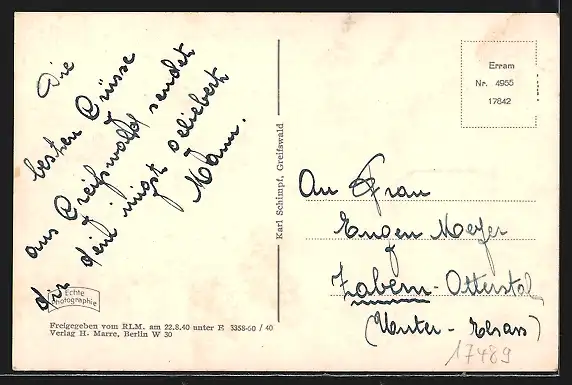 Die
besten Grüsse
aus Greifswald sendet
dir dein innigst geliebert
Mann.
Echte
Photographie
Freigegeben vom RLM. am 22.8.40 unter E 3358-60 / 40
Verlag H. Marre, Berlin W 30
Karl Schimpf, Greifswald
Erram
Nr. 4955
17842
An Frau
Eugen Meyer
Zabern-Otterstal
(Unter-Elsass)
17489